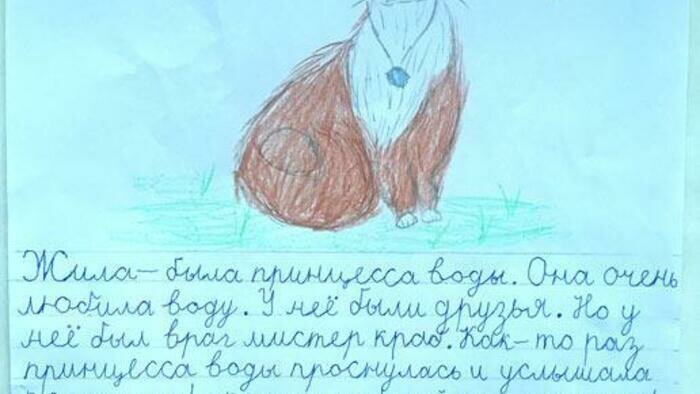 Жила-была принцесса воды. Она очень
любила воду. У неё были друзья. Но у
неё был враг мистер краб. Как-то раз
принцесса воды проснулась и услышала